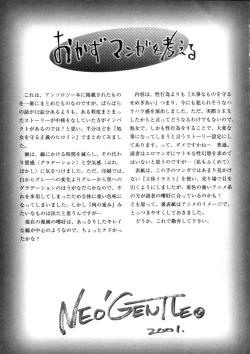 おかずマンガを考える
これは、アンソロジー本に掲載されたもの
を一冊にまとめたものなのですが、ばらばら
の話が12話分あるよりも、ある程度まとまっ
たストーリーが中核をなしていた方がインパ
クトがあるのでは？と思い、半分ほどを『処
女を守る正義のヒロイン』でまとめてみまし
た。
画は、線にかける時間を減らし、その代わ
り質感（グラデーション）と空気感（ぶれ、
ぼかし）に気をつけました。ただ、印刷では、
白からグレーへの変化よりグレーから黒への
グラデーションのほうがなだらかなので、そ
れを多用してしまったため全体に重い色味に
なってしまいました。しかし『肉の重み』み
たいなものは出たと思うんですが…
現在の漫画の嗜好は、あっさりしたキレイ
な線が中心のようなので、ちょっとクドかっ
たかな？
内容は、性行為よりも『大事なものを守る
せめぎあい』つまり、今にも犯られそうなハ
ラハラ感を演出しました。ただ、実際ＳＥＸ
したからと言ってどうなるわけでもないので、
処女で、しかも性行為をすることで、大変な
事になってしまうことにより、ストーリー的に
あります。って、ダメですかね～　普通、
読者はエロマンガにマトモな性幻想を求めて
はいないと思うのですが…（私もふくめて）
表紙は、この手のマンガではあまり見かけ
ない『立体イラスト』を使い、売り場で目を
引くようにしましたが、原色の強いアニメ系
の方が読者の嗜好に合っているのかも？
とも思い、裏表紙はアニメのイメージで、
とっつきやすくしておきました。
どうか、これで勘弁して下さい。
NEO'GENTLE
2001.